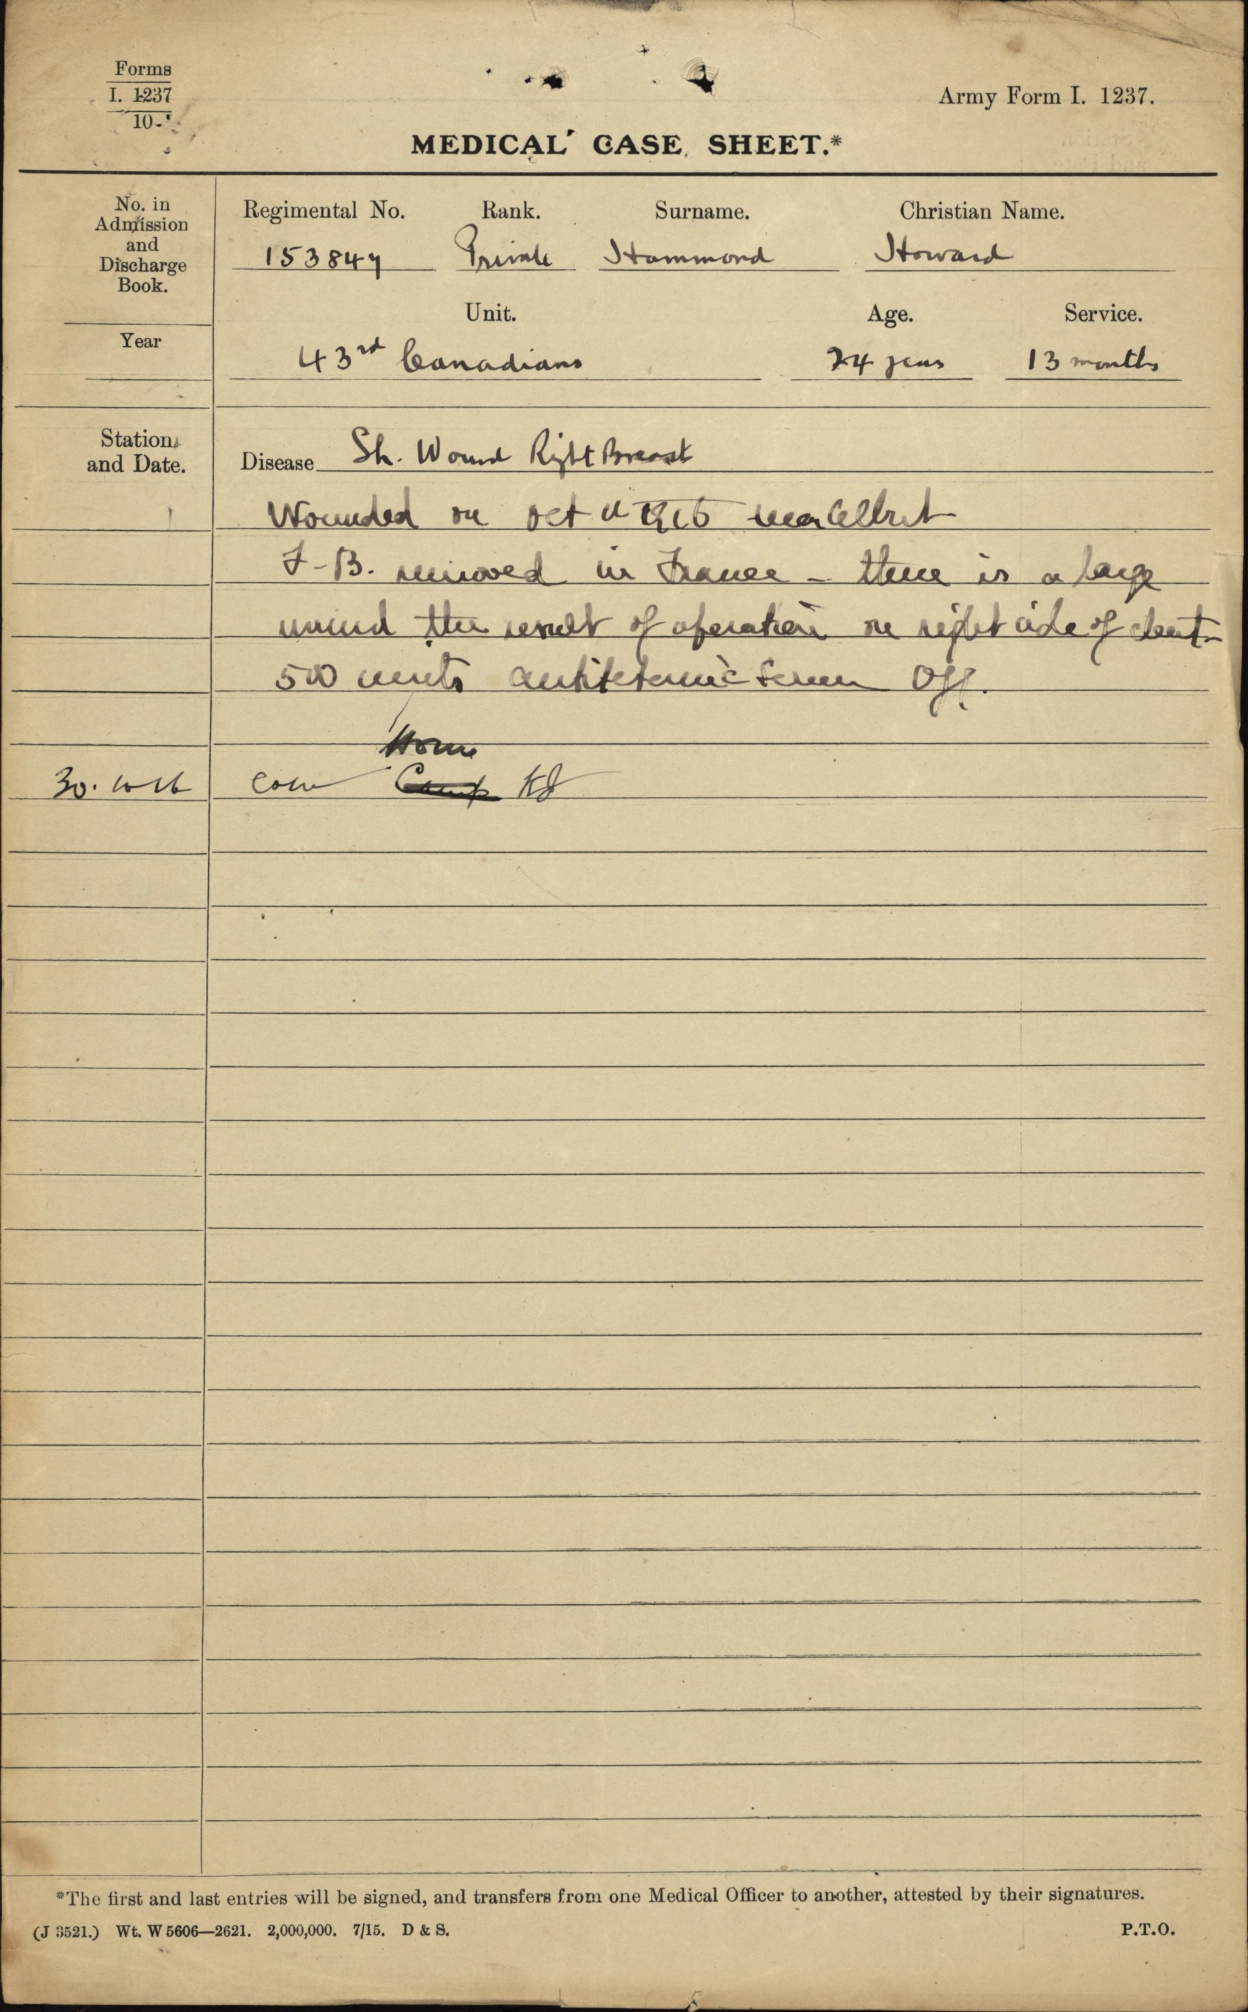 Forms
I. 1237
10
Army Form I. 1237.
MEDICAL CASE SHEET.*
No. in
Admission
and
Discharge
Book.
Regimental No. Rank. Surname. Christian Name.
153847 Private Hammond Howard
Year
Unit. Age. Service.
43rd Canadians 24 years 13 months
Station
and Date.
Disease Sh. Wound Right Breast
Wounded on Oct 11 1916 near Albert
F-B. removed in France - there is a large
wound the result of operation on right side of chest-
500 units antitetanic serum
Home
30. 10 16 Con Camp
*The first and last entries will be signed, and transfers from one Medical Officer to another, attested by their signatures.
(J 3521.) Wt. W 5606—2621. 2,000,000. 7/15. D & S.
P.T.O.